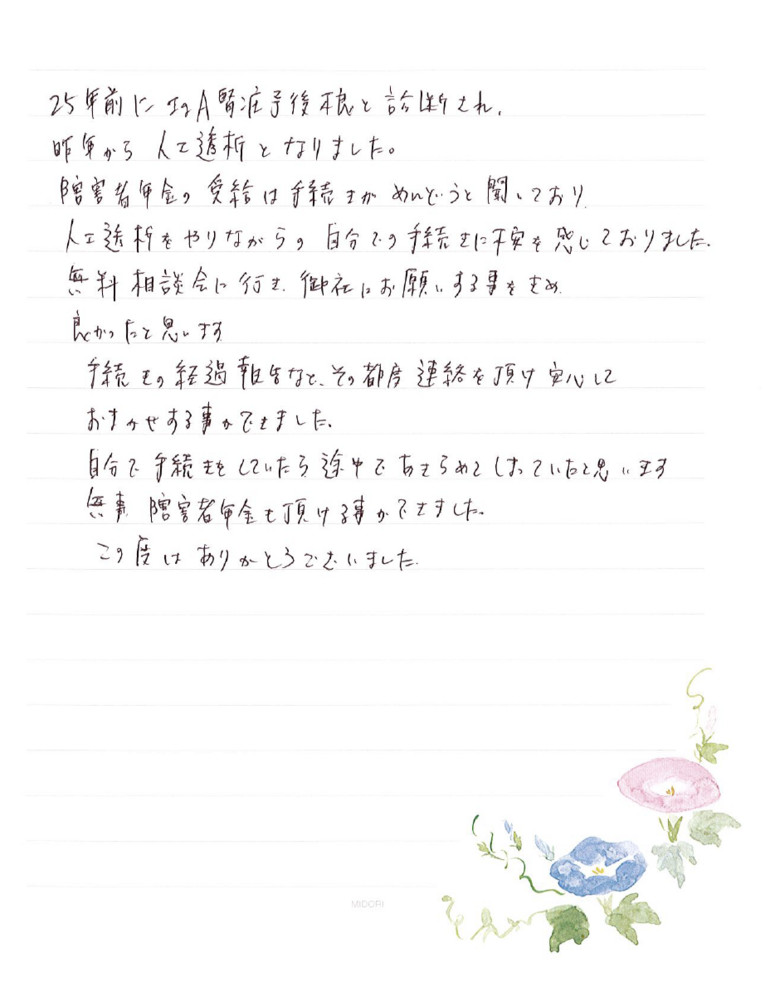 25年前にIgA腎症予後不良と診断され、
昨年から人工透析となりました。
障害者年金の受給は手続きがめんどうと聞いており
人工透析をやりながらの自分での手続きに不安を感じておりました。
無料相談会に行き、御社にお願いする事をきめ
良かったと思います
手続きの経過報告など、その都度連絡を頂け安心して
おまかせする事ができました。
自分で手続きをしていたら途中であきらめてしまっていたと思います
無事障害者年金も頂ける事ができました。
この度はありがとうございました。
MIDORI